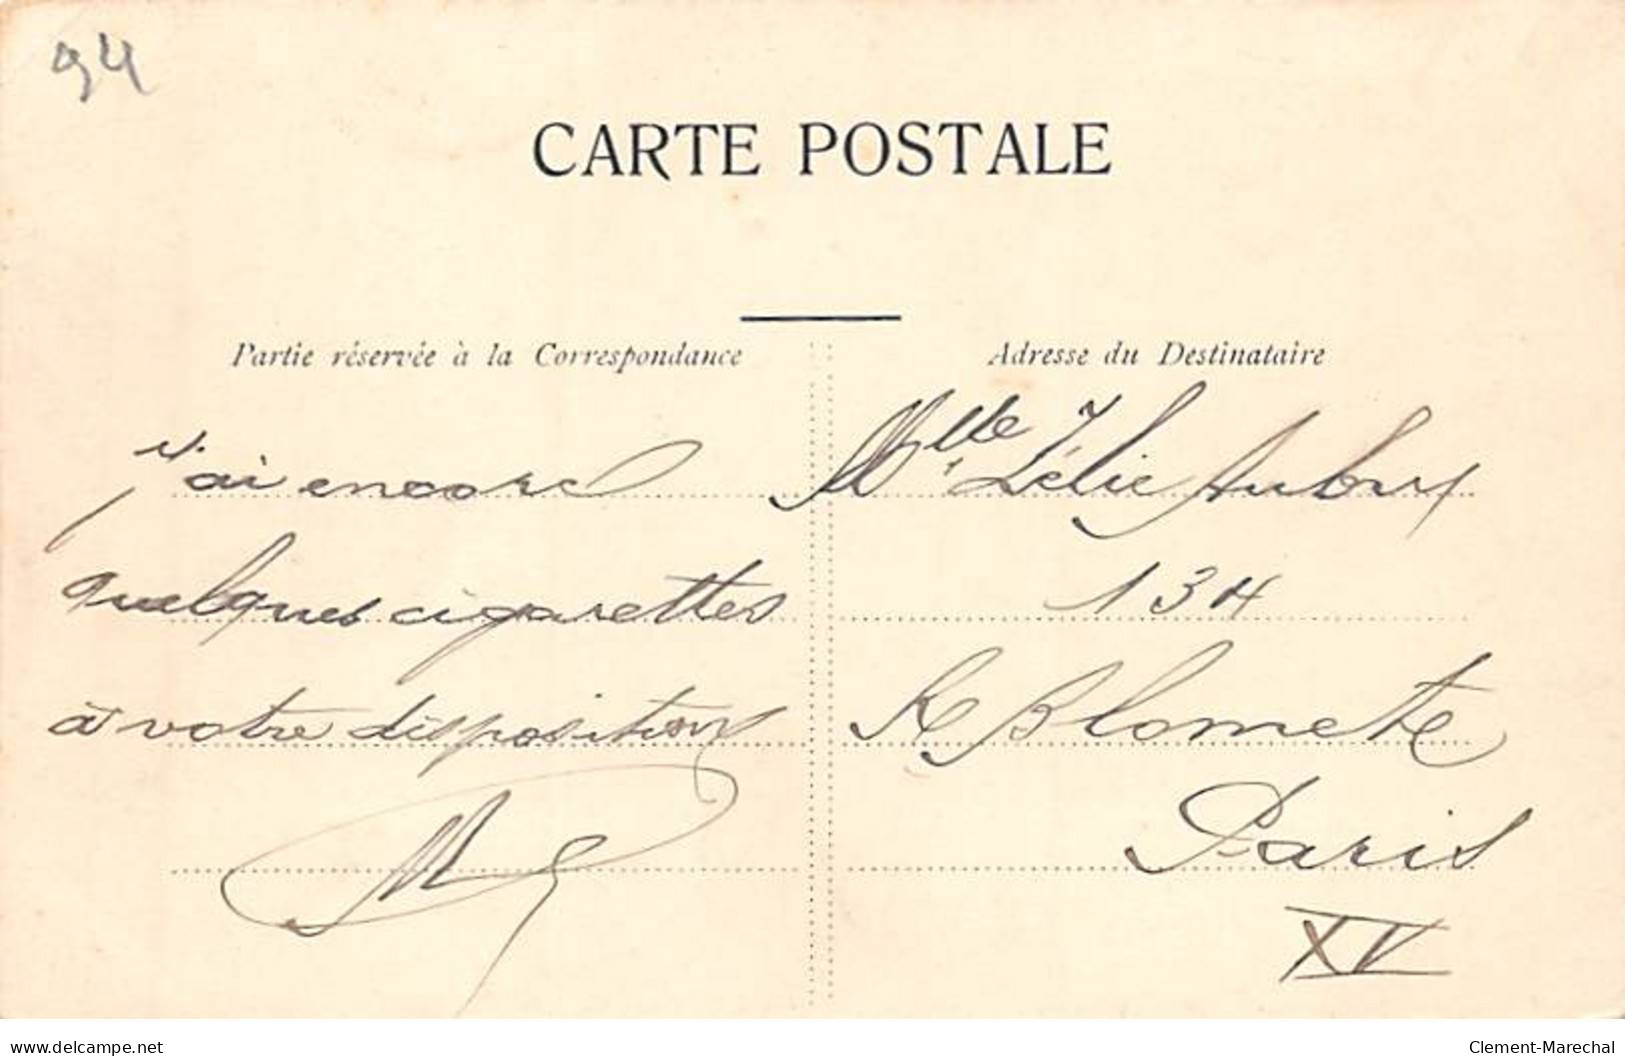 94
CARTE POSTALE
Partie réservée à la Correspondance
j'ai encore
quelques cigarettes
à votre disposition
Adresse du Destinataire
Mlle Zélie Aubry
134
R Blomete
Paris
XV
www.delcampe.net
Clement-Marechal